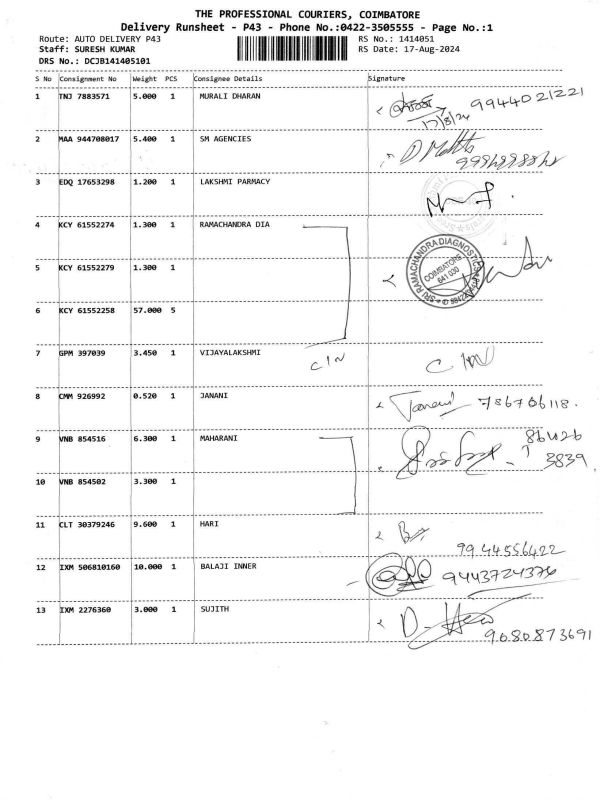 THE PROFESSIONAL COURIERS, COIMBATORE
Delivery Runsheet - P43 - Phone No.:0422-3505555 - Page No.:1
Route: AUTO DELIVERY P43 RS No.: 1414051
Staff: SURESH KUMAR RS Date: 17-Aug-2024
DRS No.: DCJB141405101
S No Consignment No Weight PCS Consignee Details Signature
1 TNJ 7883571 5.000 1 MURALI DHARAN 9944021221
17/8/24
2 MAA 944708017 5.400 1 SM AGENCIES
3 EDQ 17653298 1.200 1 LAKSHMI PARMACY
4 KCY 61552274 1.300 1 RAMACHANDRA DIA
SRI RAMACHANDRA DIAGNOSTICS
COIMBATORE
641 030
5 KCY 61552279 1.300 1
6 KCY 61552258 57.000 5
7 GPM 397039 3.450 1 VIJAYALAKSHMI C/N
8 CMM 926992 0.520 1 JANANI Janani 786706118.
9 VNB 854516 6.300 1 MAHARANI 86026
3839
10 VNB 854502 3.300 1
11 CLT 30379246 9.600 1 HARI
99.44556422
12 IXM 506810160 10.000 1 BALAJI INNER 9443724376
13 IXM 2276360 3.000 1 SUJITH
9.080873691